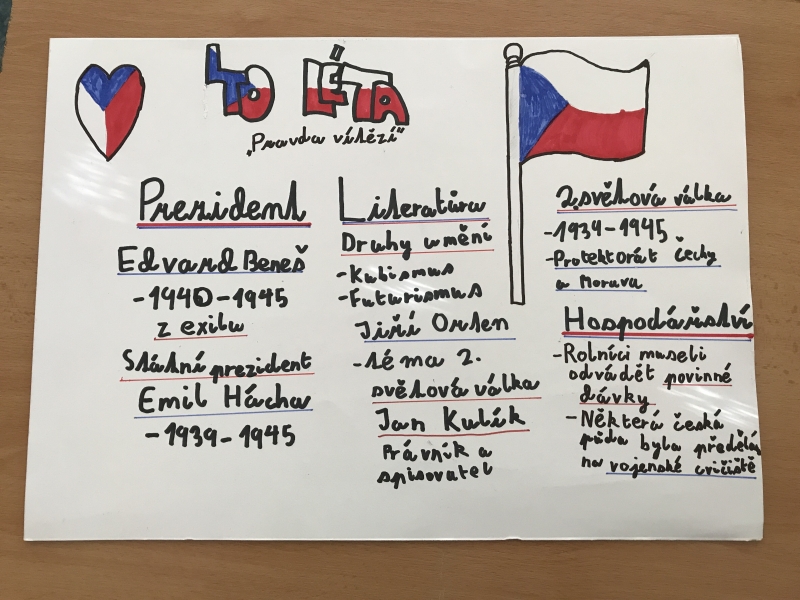 40 LÉTA
„Pravda vítězí“
Prezident
Edvard Beneš
-1940-1945
z exilu
Státní prezident
Emil Hácha
-1939-1945
Literatura
Druhy umění
-Kubismus
-Futurismus
Jiří Orten
-téma 2.
světová válka
Jan Kulík
Právník a
spisovatel
2.světová válka
-1934-1945
-Protektorát Čechy
a Morava
Hospodářství
-Rolníci museli
odvádět povinné
dávky
-Některá česká
půda byla předělán
na vojenské cvičiště